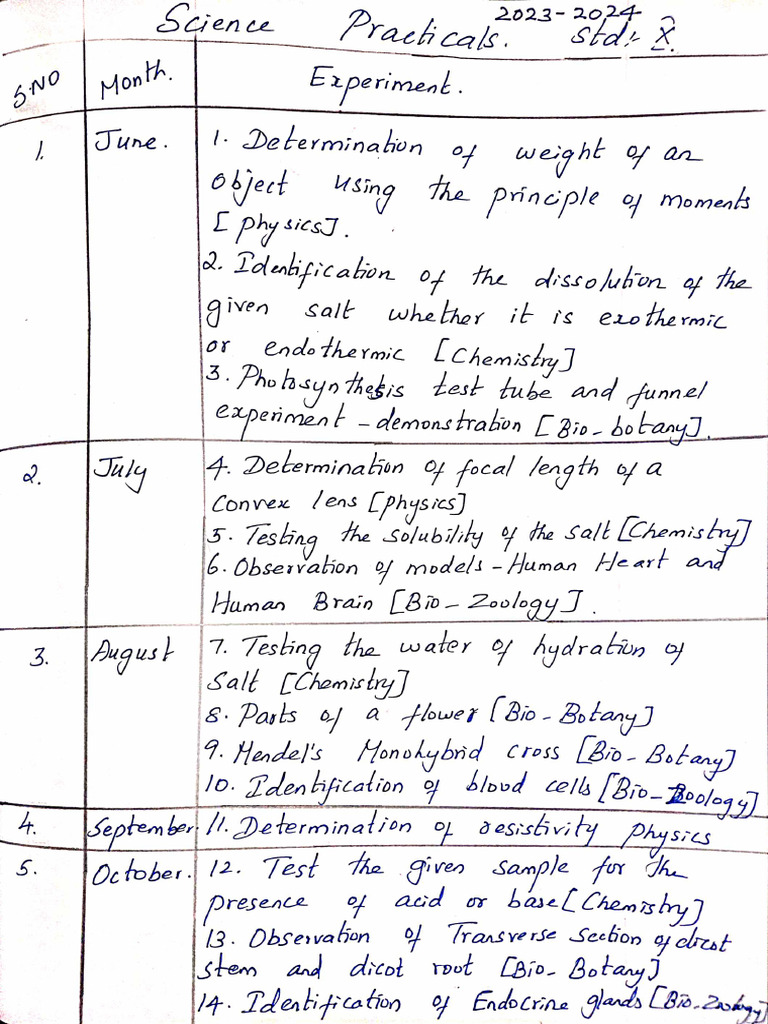 2023-2024
Science Practicals. Std:- X.
S.NO Month. Experiment.
1. June. 1. Determination of weight of an
Object using the principle of moments
[physics].
2. Identification of the dissolution of the
given salt whether it is exothermic
or endothermic [Chemistry]
3. Photosynthesis test tube and funnel
experiment - demonstration [Bio-botany].
2. July 4. Determination of focal length of a
Convex lens [physics]
5. Testing the solubility of the salt [Chemistry]
6. Observation of models - Human Heart and
Human Brain [Bio-Zoology].
3. August 7. Testing the water of hydration of
Salt [Chemistry]
8. Parts of a flower [Bio-Botany]
9. Mendel's Monohybrid cross [Bio-Botany]
10. Identification of blood cells [Bio-Zoology]
4. September. 11. Determination of resistivity physics
5. October. 12. Test the given sample for the
presence of acid or base [Chemistry]
13. Observation of Transverse section of dicot
stem and dicot root [Bio-Botany]
14. Identification of Endocrine glands [Bio-Zoology]